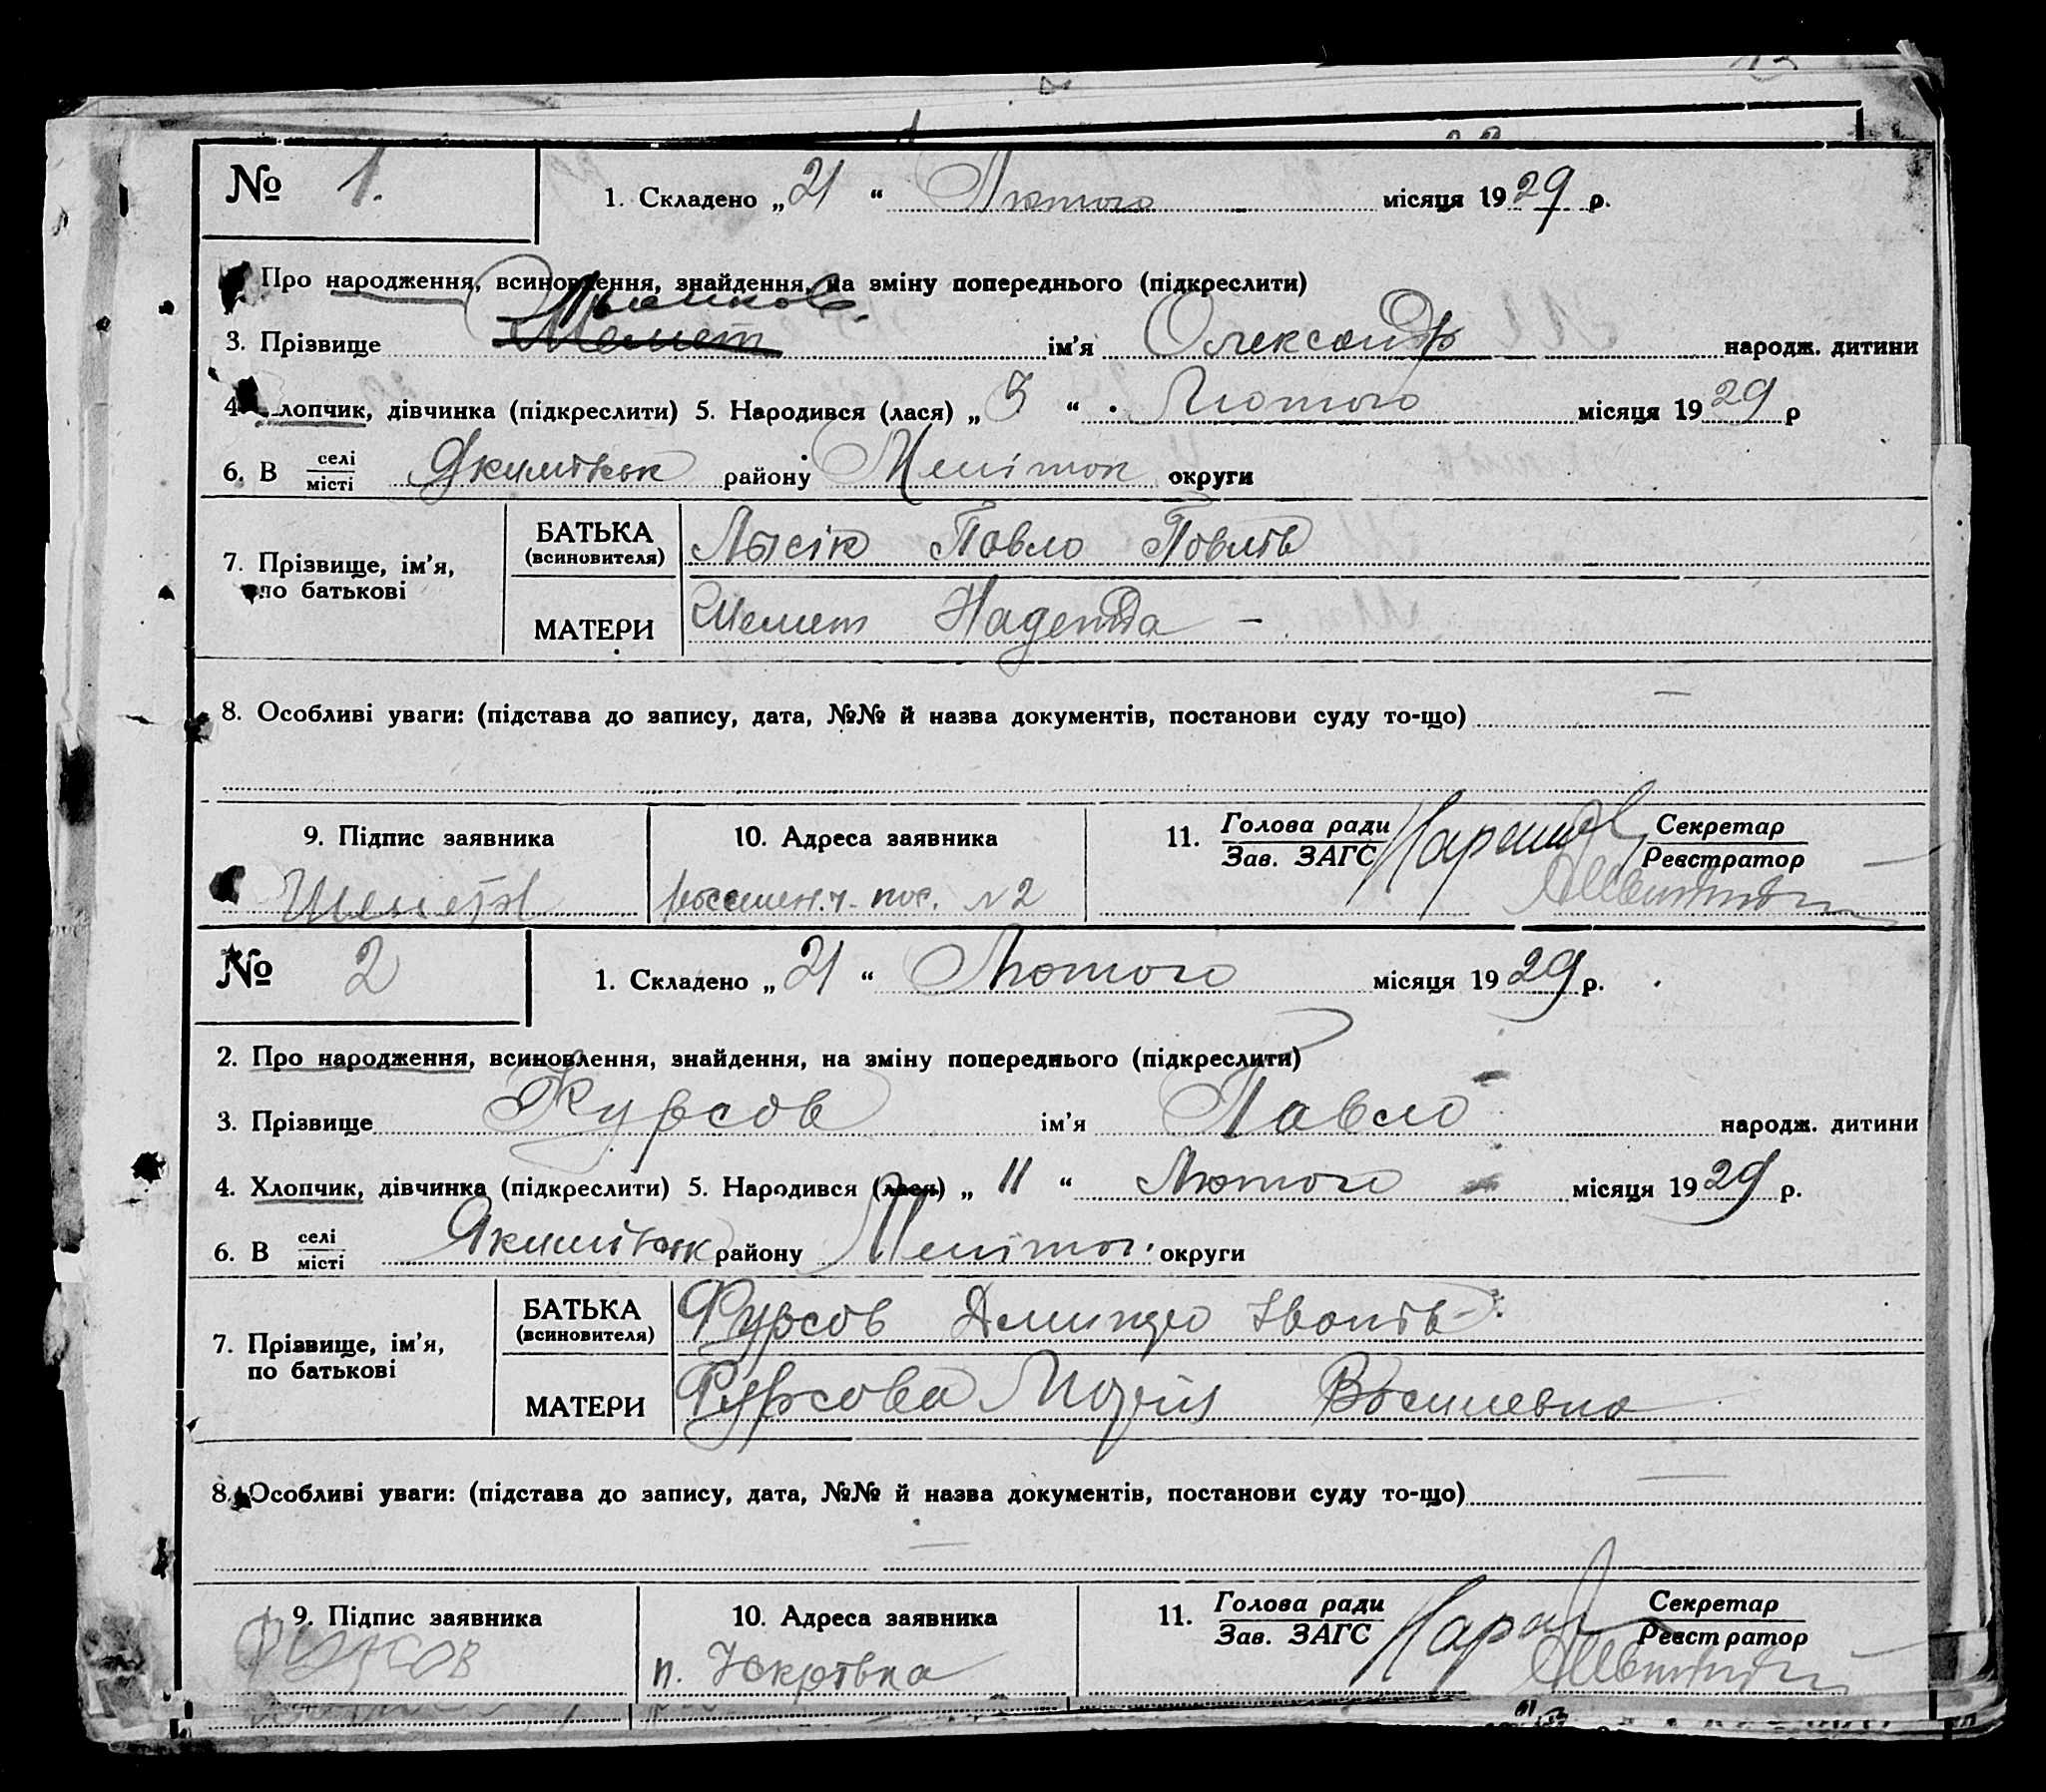 № 1. 1. Складено „21“ Лютого місяця 1929 р.
Про народження, всиновлення, знайдення, на зміну попереднього (підкреслити)
3. Прізвище Шемет ім'я Олександр народж. дитини
4. Хлопчик, дівчинка (підкреслити) 5. Народився (лася) „5“ Лютого місяця 1929 р
6. В селі місті Якимівськ району Меліток округи
7. Прізвище, ім'я, по батькові
БАТЬКА (всиновителя) Лысік Павло Павлів
МАТЕРИ Шемет Надежда –
8. Особливі уваги: (підстава до запису, дата, №№ й назва документів, постанови суду то-що) —
9. Підпис заявника 10. Адреса заявника 11. Голова ради Зав. ЗАГС Секретар Реєстратор
Шемет пос. №2
№ 2 1. Складено „21“ Лютого місяця 1929 р.
2. Про народження, всиновлення, знайдення, на зміну попереднього (підкреслити)
3. Прізвище Фурсов ім'я Павло народж. дитини
4. Хлопчик, дівчинка (підкреслити) 5. Народився (лася) „11“ Лютого місяця 1929 р.
6. В селі місті Якимівськ району Меліто. округи
7. Прізвище, ім'я, по батькові
БАТЬКА (всиновителя) Фурсов Дмитро Іванів
МАТЕРИ Фурсова Марія Василевна
8. Особливі уваги: (підстава до запису, дата, №№ й назва документів, постанови суду то-що) —
—
9. Підпис заявника 10. Адреса заявника 11. Голова ради Зав. ЗАГС Секретар Реєстратор
Фурсов п.